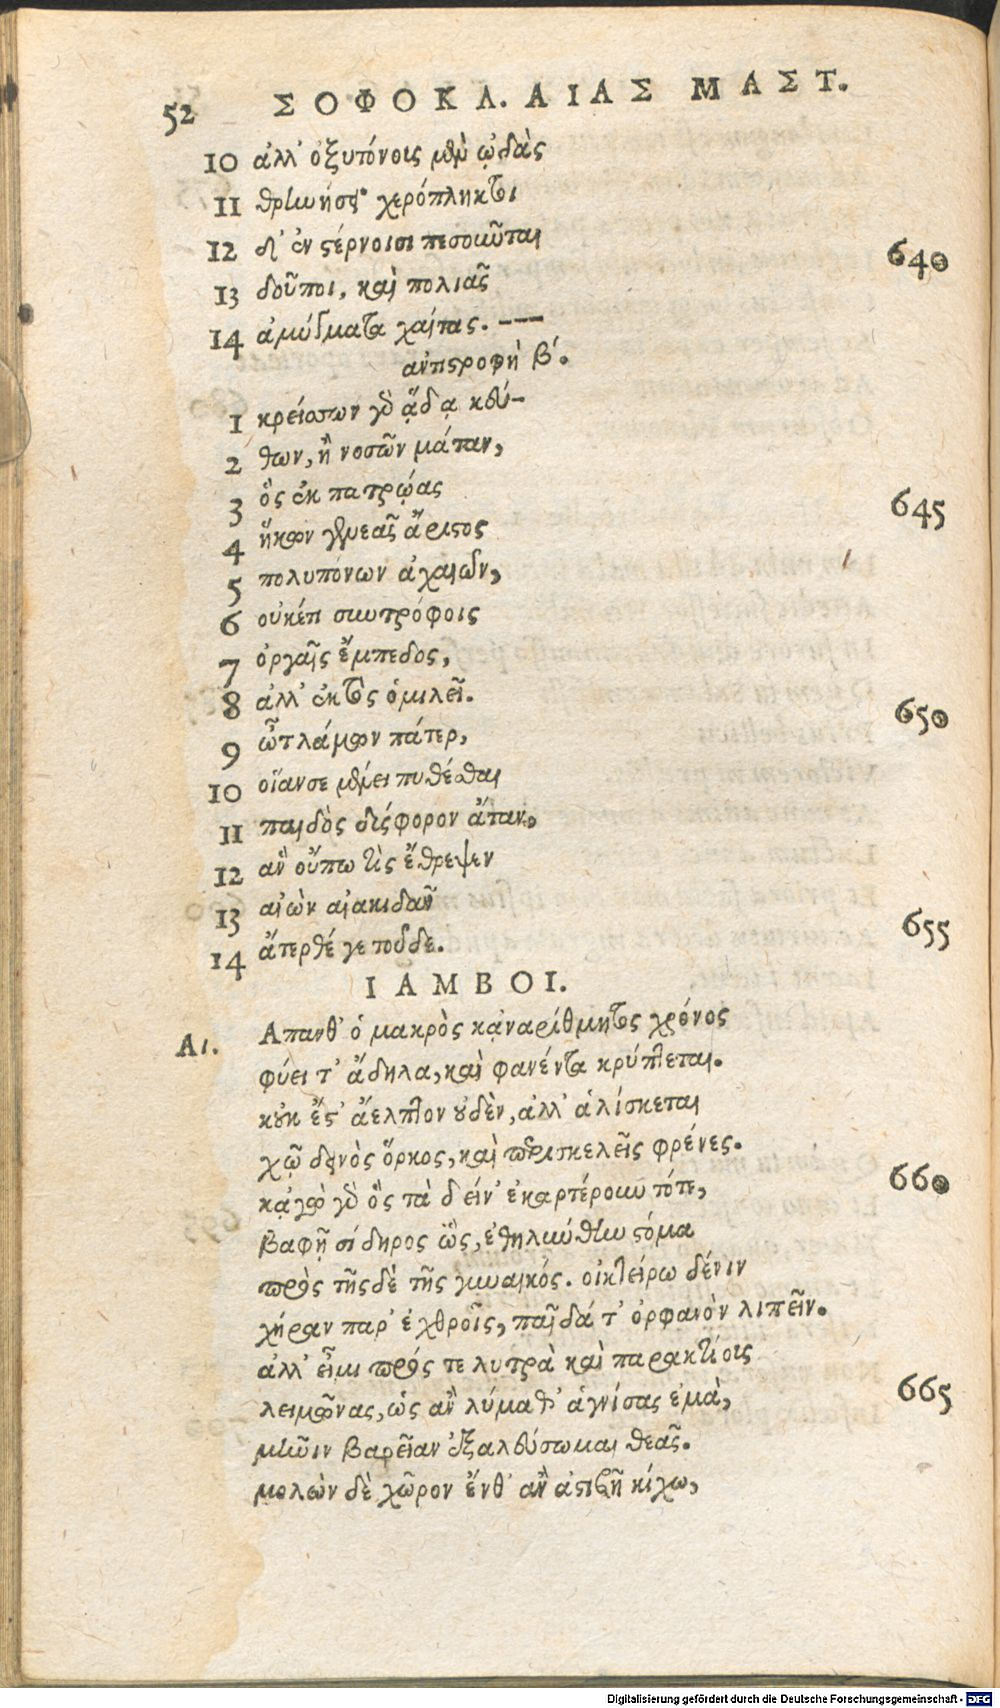 52 ΣΟΦΟΚΛ. ΑΙΑΣ ΜΑΣΤ.
10 ἀλλ' ὀξυτόνοις μὲν ᾠδὰς
11 θρηνήσει· χερόπληκτοι
12 δ' ἐν στέρνοισι πεσοῦνται 640
13 δοῦποι, καὶ πολιᾶς
14 ἀμύγματα χαίτας. ---
ἀντιστροφὴ β΄.
1 κρείσσων γὸ ᾅδᾳ κεύ-
2 θων, ἢ νοσῶν μάταν,
3 ὃς ἐκ πατρῴας 645
4 ἥκων γενεᾶς ἄριστος
5 πολυπόνων ἀχαιῶν,
6 οὐκέτι συντρόφοις
7 ὀργαῖς ἔμπεδος,
8 ἀλλ' ἐκτὸς ὁμιλεῖ. 650
9 ὦ τλάμων πάτερ,
10 οἵαν σε μένει πυθέσθαι
11 παιδὸς δύσφορον ἄταν,
12 ἃν οὔπω τὶς ἔθρεψεν
13 αἰὼν αἰακιδᾶν 655
14 ἄτερθέ γε τοῦδε.
ΙΑΜΒΟΙ.
Αι. Απανθ' ὁ μακρὸς κᾀναρίθμητος χρόνος
φύει τ' ἄδηλα, καὶ φανέντα κρύπτεται.
κοὐκ ἔστ' ἄελπτον οὐδὲν, ἀλλ' ἁλίσκεται
χᾦ δεινὸς ὅρκος, καὶ περισκελεῖς φρένες.
κᾀγὼ γὸ ὃς τὰ δείν' ἐκαρτέρουν τότε, 660
βαφῇ σίδηρος ὣς, ἐθηλύνθην στόμα
πρὸς τῆσδε τῆς γυναικός. οἰκτείρω δέ νιν
χήραν παρ' ἐχθροῖς, παῖδά τ' ὀρφανὸν λιπεῖν.
ἀλλ' εἶμι πρός τε λουτρὰ καὶ παρακτίοις
λειμῶνας, ὡς ἂν λύμαθ' ἁγνίσας ἐμὰ, 665
μῆνιν βαρεῖαν ἐξαλεύσωμαι θεᾶς.
μολὼν δὲ χῶρον ἔνθ' ἂν ἀστιβῆ κίχω,
Digitalisierung gefördert durch die Deutsche Forschungsgemeinschaft - DFG